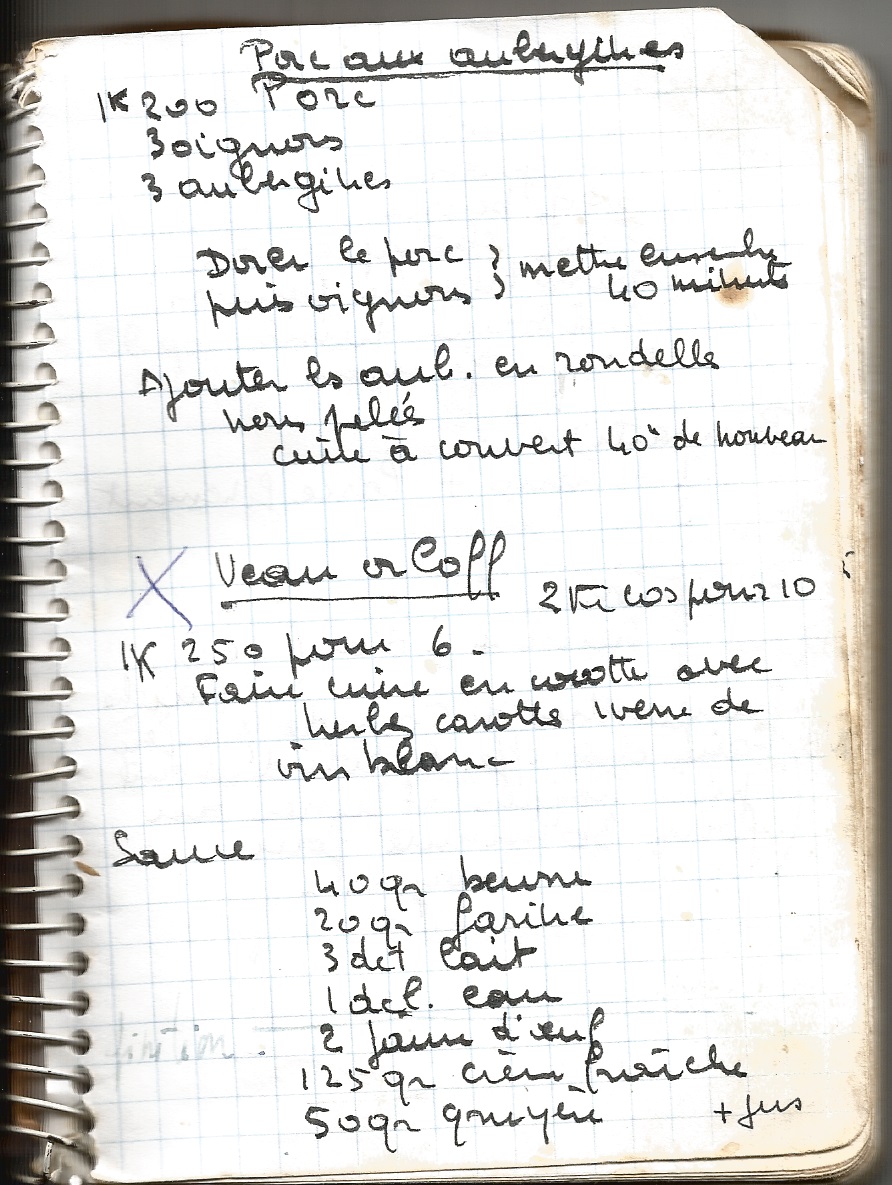 Porc aux aubergines
1K 200 Porc
3 oignons
3 aubergines
Dorer le porc } mettre ensemble
puis oignons } 40 minutes
Ajouter les aub. en rondelles
non pelées
cuire à couvert 40" de nouveau
X Veau orloff
2K pour 10
1K 250 pour 6 -
Faire cuire en cocotte avec
herbes carottes 1 verre de
vin blanc
Sauce
40 gr beurre
20 gr farine
3 dcl lait
1 dcl. eau
finition . 2 jaune d'œuf
125 gr crème fraîche
50 gr gruyère + jus